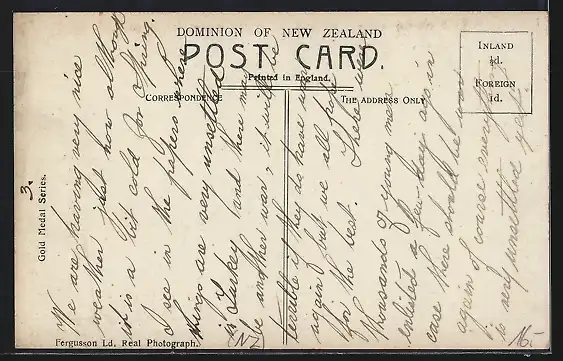 DOMINION OF NEW ZEALAND
POST CARD.
Printed in England.
CORRESPONDENCE
THE ADDRESS ONLY
INLAND
½d.
FOREIGN
1d.
Gold Medal Series.
3.
Fergusson Ld, Real Photograph.
We are having very nice
weather just now although
it is a bit cold for Spring.
I see in the papers where
things are very unsettled
in Turkey and there may
be another war, it will be
terrible if they do have war
again but we all hope
for the best. There were
thousands of young men
enlisted a few days ago in
case there should be war
again of course everything
is very unsettled yet.
NZ
16.-